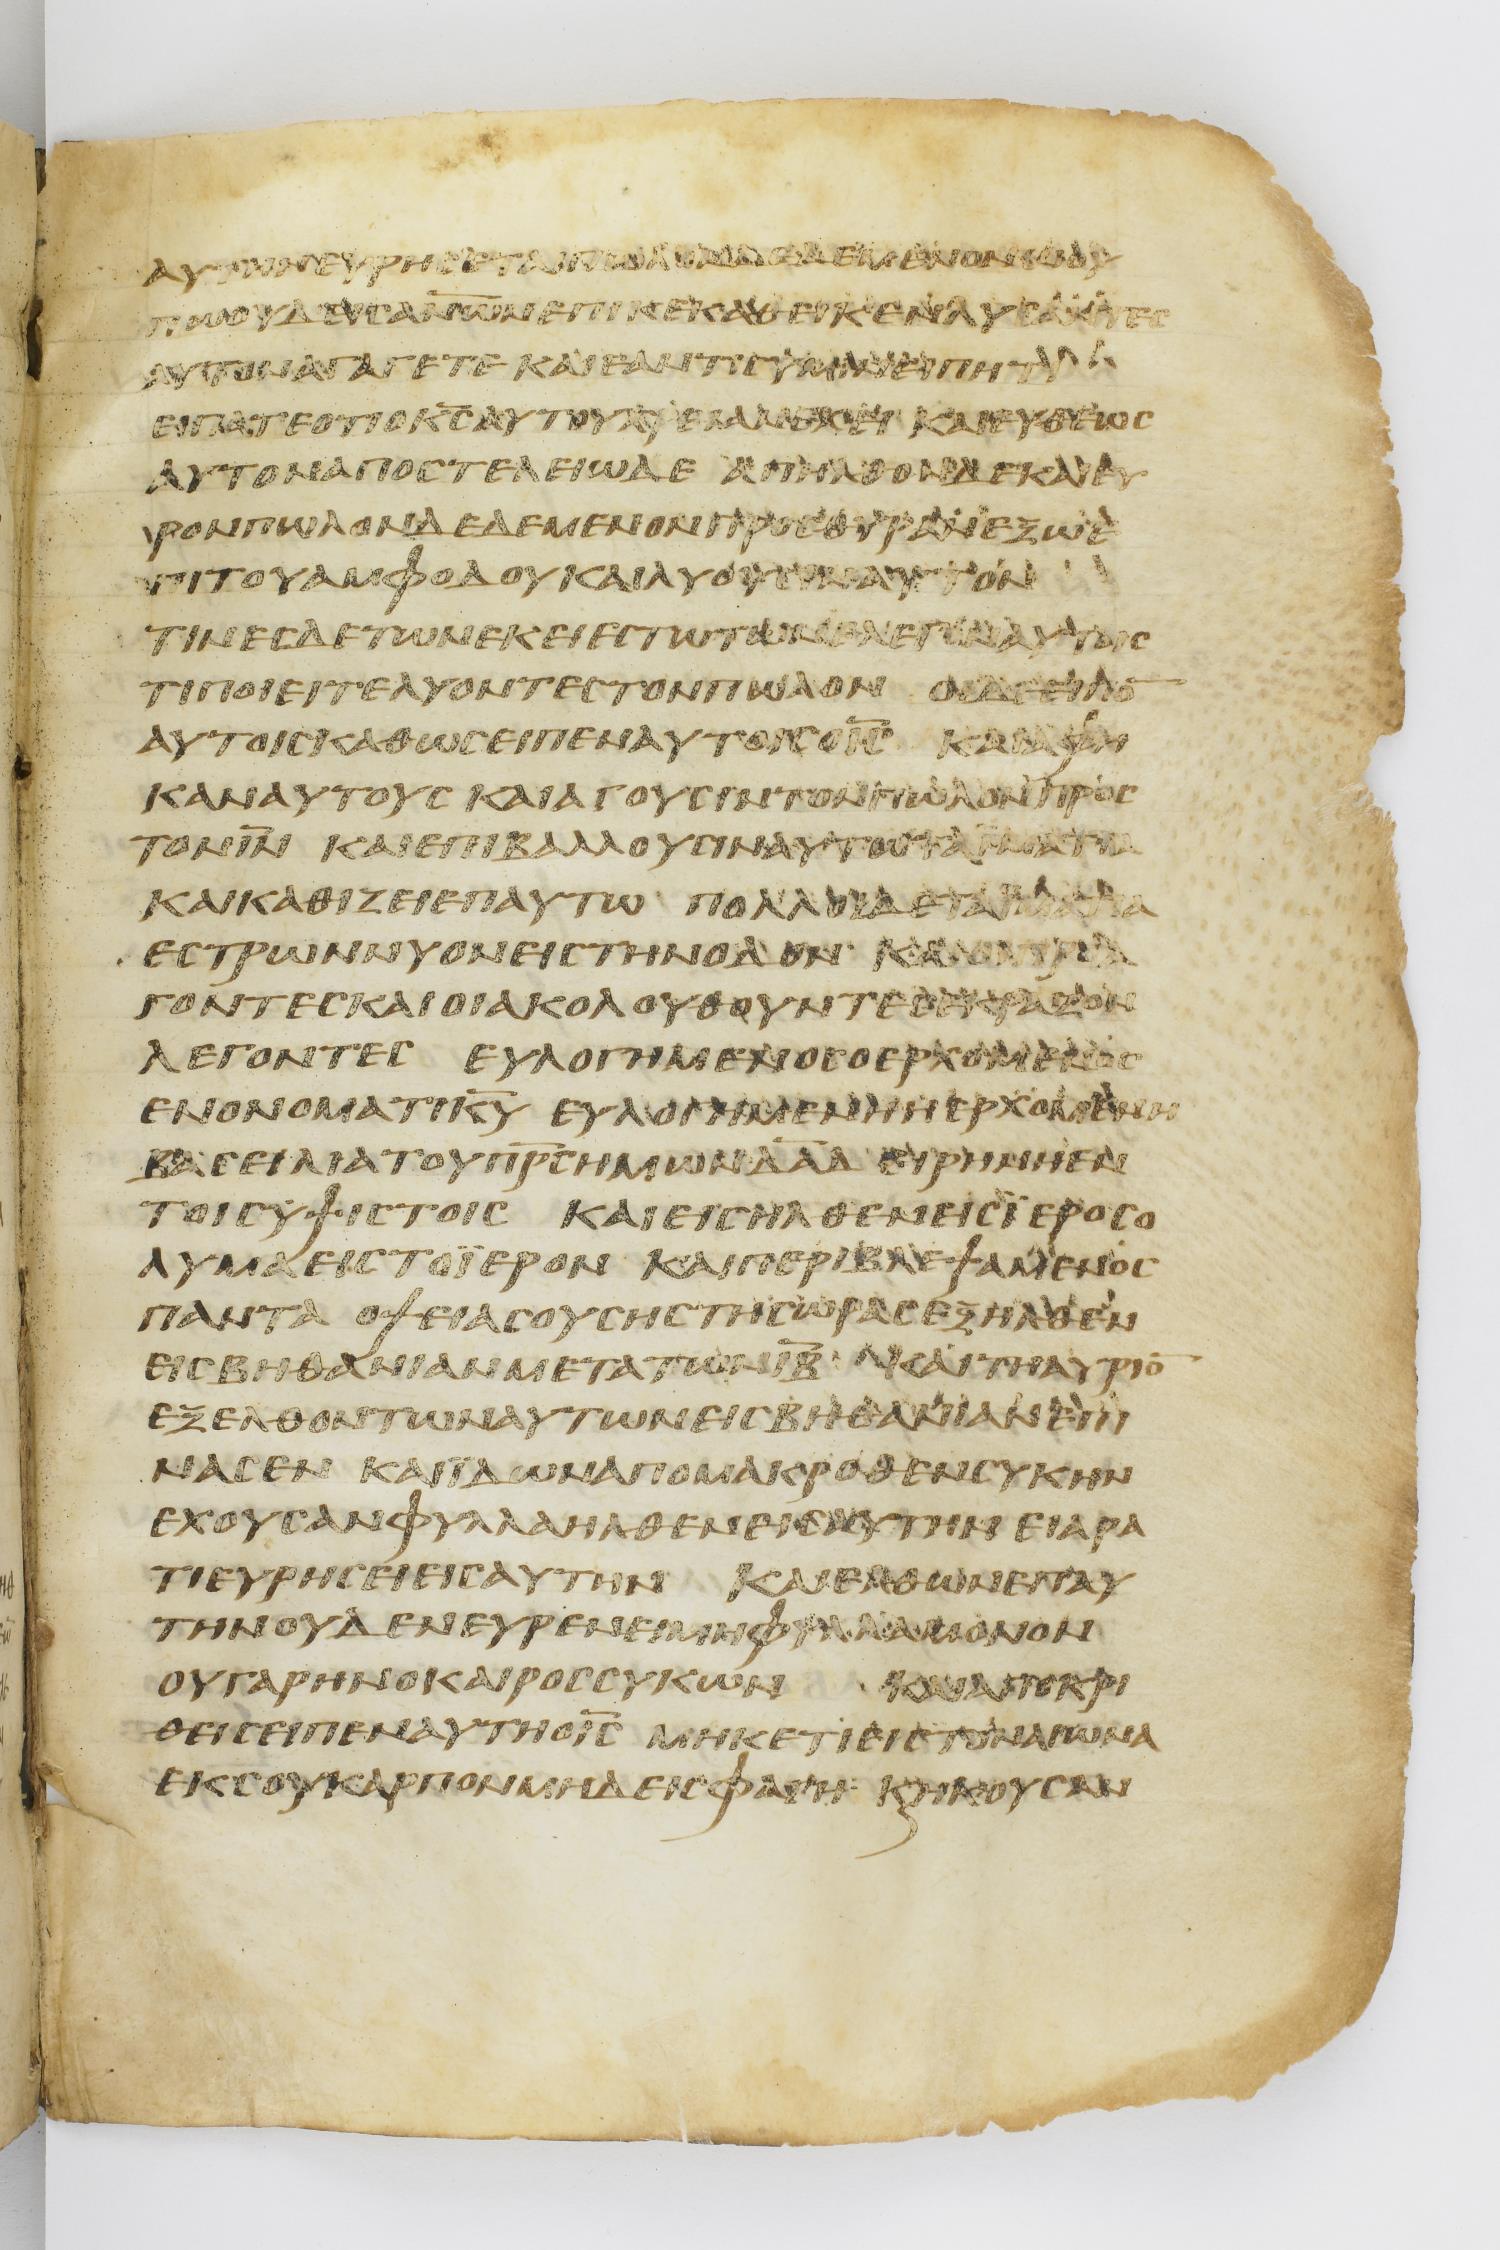 αυτην ευρησεται πωλον δεδεμενον εφ ον
πω ουδεις α̅ν̅ω̅ν̅ επικεκαθεικεν λυσαντες
αυτον αγαγετε και εαν τις υμιν ειπη τι
ειπατε οτι ο κ̅ς̅ αυτου χρειαν εχει και ευθεως
αυτον αποστελει ωδε απηλθον δε και ευ
ρον πωλον δεδεμενον προς θυραν εξω ε
πι του αμφοδου και λυουσιν αυτον
τινες δε των εκει εστωτων ελεγον αυτοις
τι ποιειτε λυοντες τον πωλον οι δε ειπο̅
αυτοις καθως ειπεν αυτοις ο ι̅ς̅ και αφη
καν αυτους και αγουσιν τον πωλον προς
τον ι̅ν̅ και επιβαλλουσιν αυτου τα ιματια
και καθιζει επ αυτω πολλοι δε τα ιματια
εστρωννυον εις την οδον και οι προα
γοντες και οι ακολουθουντες εκραζον
λεγοντες ευλογημενος ο ερχομενος
εν ονοματι κ̅υ̅ ευλογημενη η ερχομενη
βασειλια του π̅ρ̅ς̅ ημων δ̅α̅δ̅ ειρηνη εν
τοις υψιστοις και εισηλθεν εις ϊεροσο
λυμα εις το ϊερον και περιβλεψαμενος
παντα οψειας ουσης της ωρας εξηλθεν
εις βηθανιαν μετα των ι̅β̅ και τη αυριο̅
εξελθοντων αυτων εις βηθανιαν επι
νασεν και ϊδων απο μακροθεν συκην
εχουσαν φυλλα ηλθεν εις αυτην ει αρα
τι ευρησει εις αυτην και ελθων επ αυ
την ουδεν ευρεν ει μη φυλλα μονον
ου γαρ ην ο καιρος συκων και αποκρι
θεις ειπεν αυτη ο ι̅ς̅ μηκετι εις τον αιωνα
εκ σου καρπον μηδεις φαγη: κ ηκουσαν